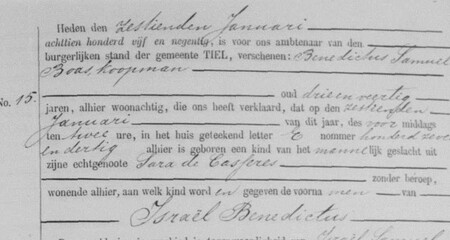 Heden den zestienden Januari
achttien honderd vijf en negentig, is voor ons ambtenaar van den
burgerlijken stand der gemeente TIEL, verschenen: Benedictus Samuel
Boas koopman
oud drie en veertig
No. 15. jaren, alhier woonachtig, die ons heeft verklaard, dat op den zestienden
Januari van dit jaar, des voor middags
ten twee ure, in het huis geteekend letter E nommer honderd zeve
en dertig alhier is geboren een kind van het mannelijk geslacht uit
zijne echtgenoote Sara de Casseres
zonder beroep,
wonende alhier, aan welk kind word en gegeven de voorna men van
Israël Benedictus